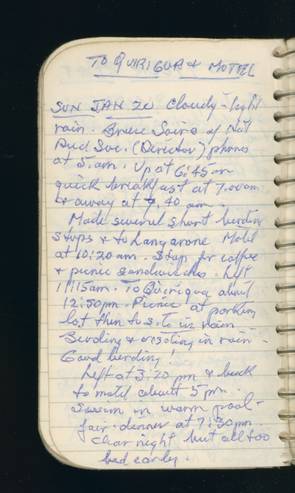 TO QUIRIGUA & MOTEL
SUN JAN 20 Cloudy - light
rain. Bruce of Nat
Aud Soc. (Director) phones
at 5 a.m. Up at 6:45 am
quick breakfast at 7.00 am
& away at 7.40 am.
Made several short birding
stops & to Longarone Motel
at 10:20 am. Stop for coffee
& picnic sandwiches. Left
11:15am. To Quirigua about
12:50pm. Picnic at parking
lot then to site in rain
Birding & in rain -
Good birding!
Left at 3:20 pm & back
to motel about 5 pm.
Swim in warm pool -
fair dinner at 7:30 pm
Clear night but all too
bed early.